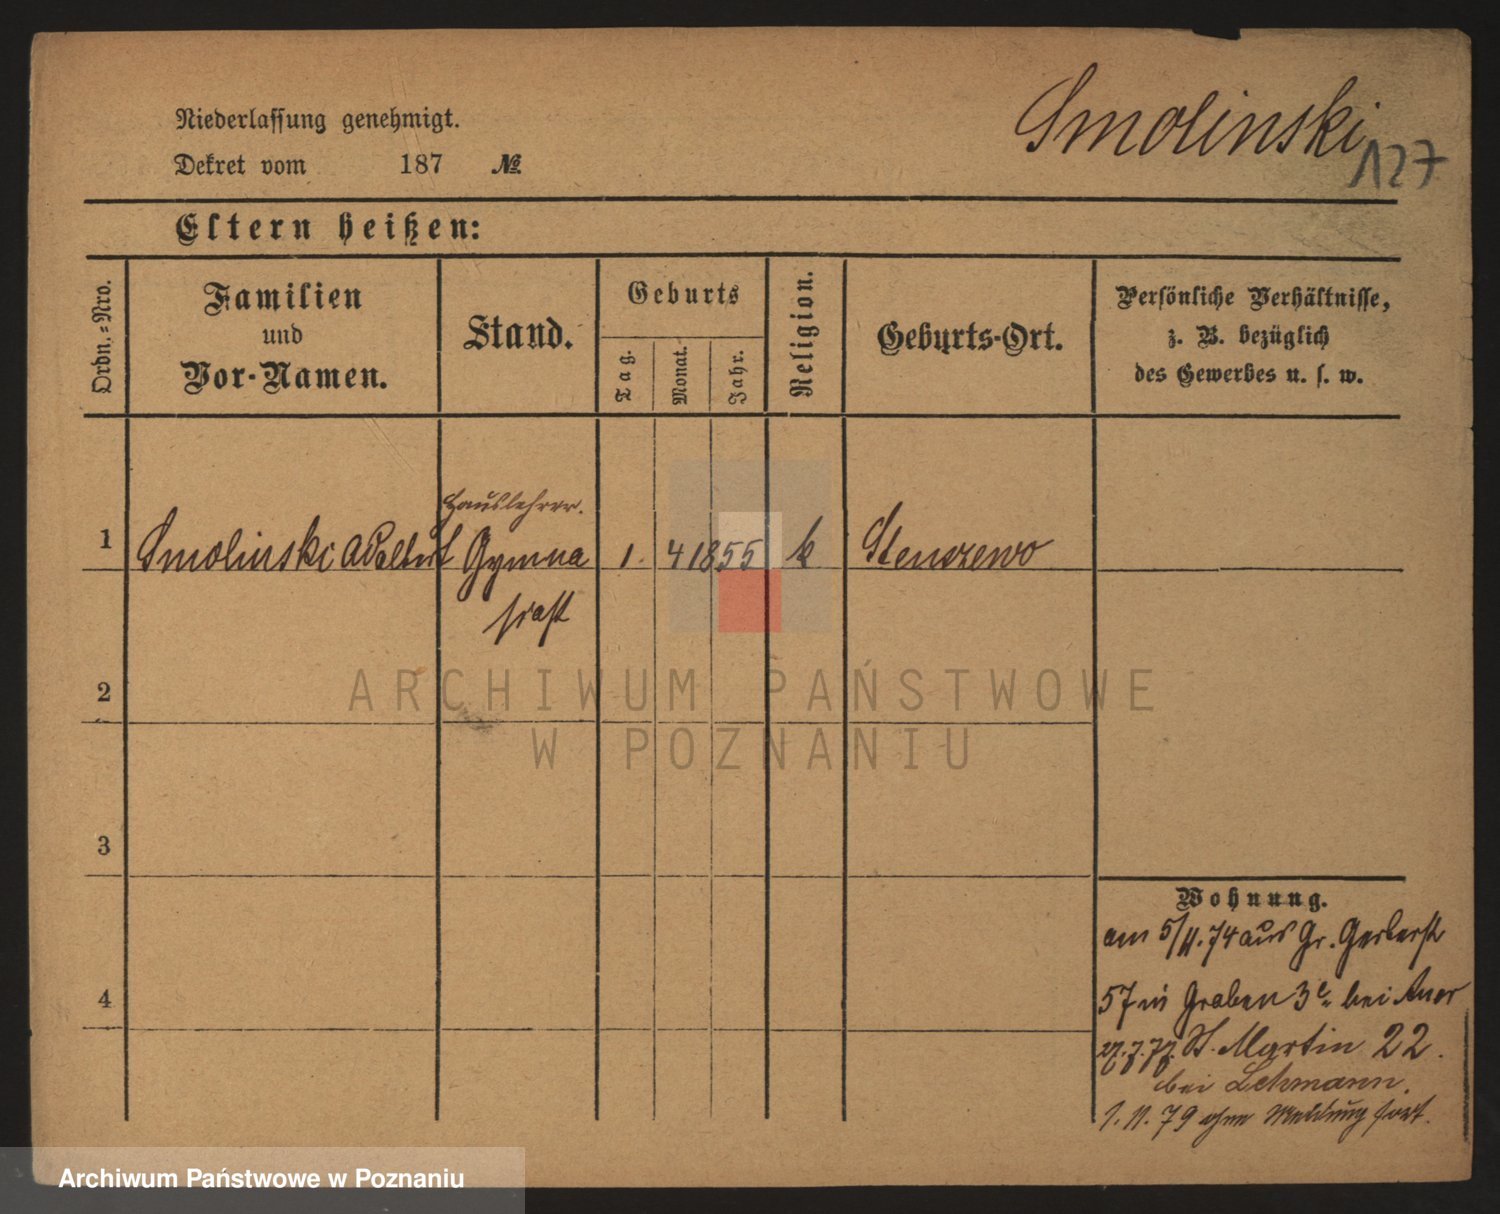 Smolinski
127
Niederlassung genehmigt.
Dekret vom 187 №
Eltern heißen:
Ordn.-Nro.
Familien
und
Vor-Namen.
Stand.
Geburts
Tag.
Monat.
Jahr.
Religion.
Geburts-Ort.
Persönliche Verhältnisse,
z. B. bezüglich
des Gewerbes u. s. w.
Hauslehrer.
1 Smolinski Adalbert Gymna 1. 4 1855 k Stenszewo
siast
2
3
4
Wohnung.
am 5/11.74 aus Gr. Gerberst
57 in Graben 3c bei
St. Martin 22.
bei Lehmann.
1. 11. 79 ohne Meldung fort.
ARCHIWUM PAŃSTWOWE
W POZNANIU
Archiwum Państwowe w Poznaniu